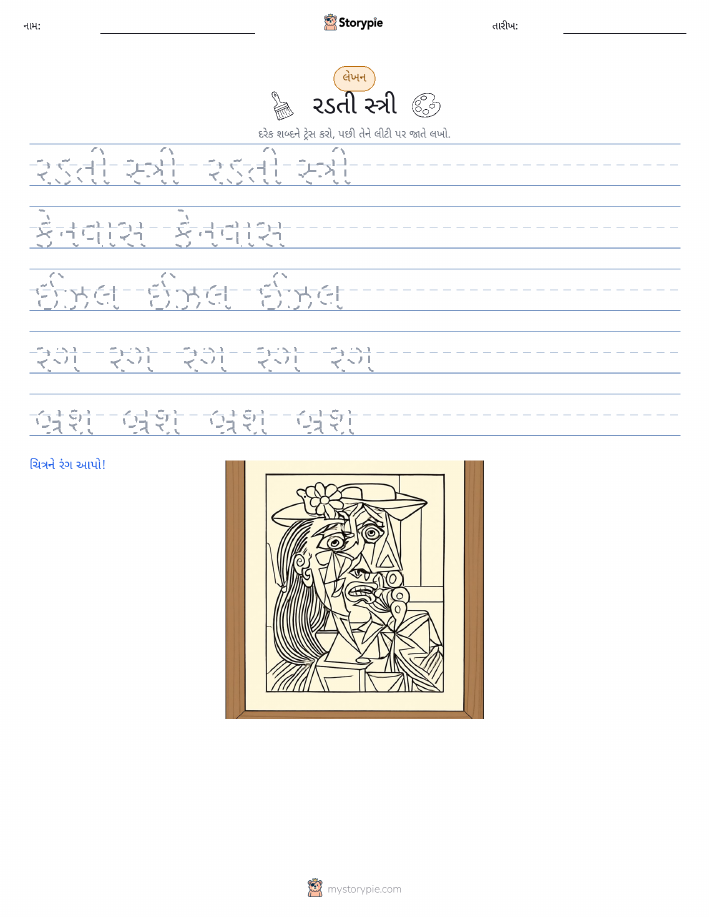 નામ: Storypie તારીખ:
લેખન
રડતી સ્ત્રી
દરેક શબ્દને ટ્રેસ કરો, પછી તેને લીટી પર જાતે લખો.
રડતી સ્ત્રી રડતી સ્ત્રી
કેનવાસ કેનવાસ
ઈઝલ ઈઝલ ઈઝલ
રગ રગ રગ રગ રગ
બ્રશ બ્રશ બ્રશ બ્રશ
ચિત્રને રંગ આપો!
mystorypie.com